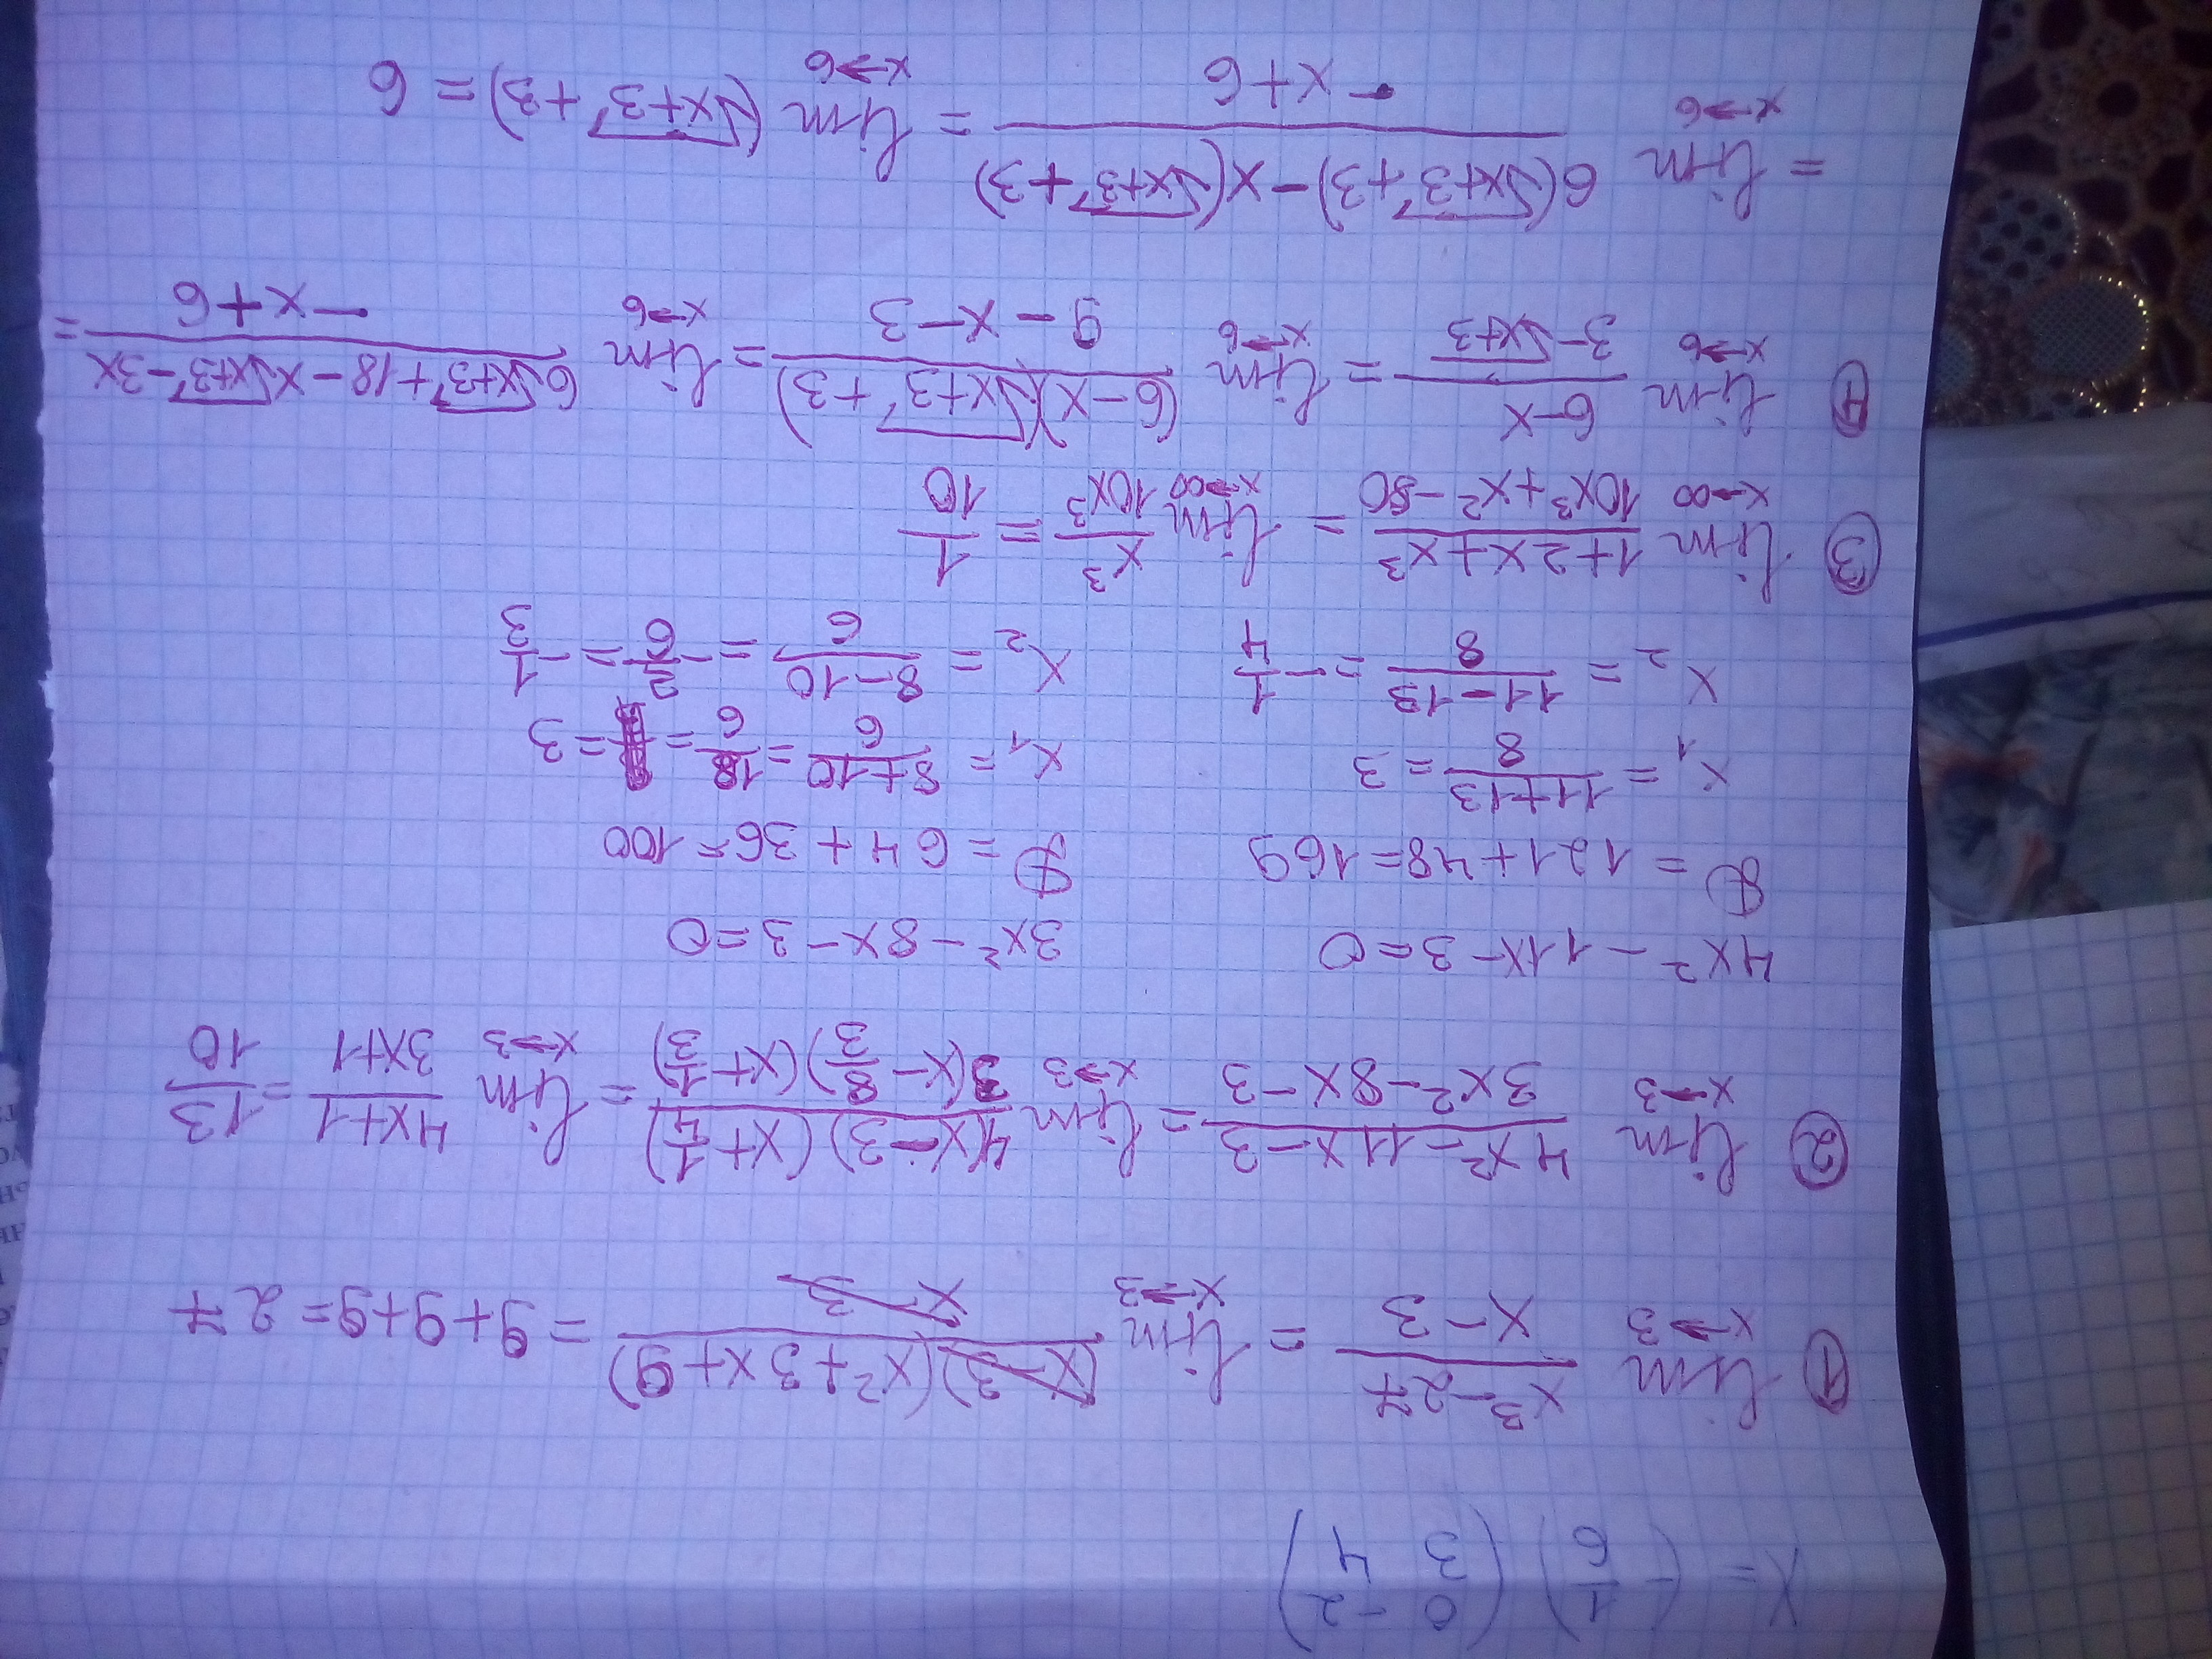 X = (-1/6) (0 -2
3 4)
① lim x→3 (x³-27)/(x-3) = lim x→3 ((x-3)(x²+3x+9))/(x-3) = 9+9+9=27
② lim x→3 (4x²-11x-3)/(3x²-8x-3) = lim x→3 (4(x-3)(x+1/4))/(3(x-8/3)(x+1/3)) = lim x→3 (4x+1)/(3x+1) = 13/10
4x²-11x-3=0 3x²-8x-3=0
D = 121+48=169 D = 64+36=100
x₁ = (11+13)/8 = 3 x₁ = (8+10)/6 = 18/6 = 3
x₂ = (11-13)/8 = -1/4 x₂ = (8-10)/6 = -2/6 = -1/3
③ lim x→∞ (1+2x+x³)/(10x³+x²-80) = lim x→∞ x³/10x³ = 1/10
④ lim x→6 (6-x)/(3-√x+3) = lim x→6 ((6-x)(√x+3+3))/(9-x-3) = lim x→6 (6√x+3+18-x√x+3-3x)/(-x+6) =
= lim x→6 (6(√x+3+3)-x(√x+3+3))/(-x+6) = lim x→6 (√x+3+3) = 6